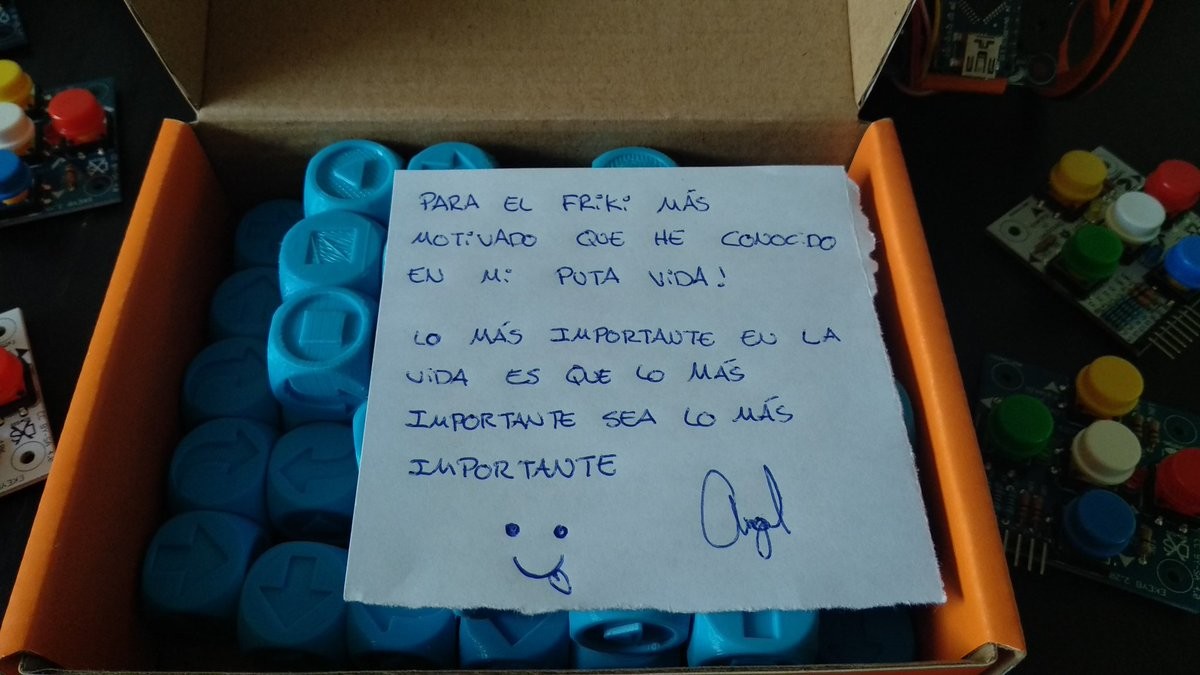 PARA EL FRiKi MÁS
MOTiVADO QUE HE CONOCiDO
EN Mi PUTA ViDA!
LO MÁS IMPORTANTE EN LA
ViDA ES QUE LO MÁS
IMPORTANTE SEA LO MÁS
IMPORTANTE
Angel